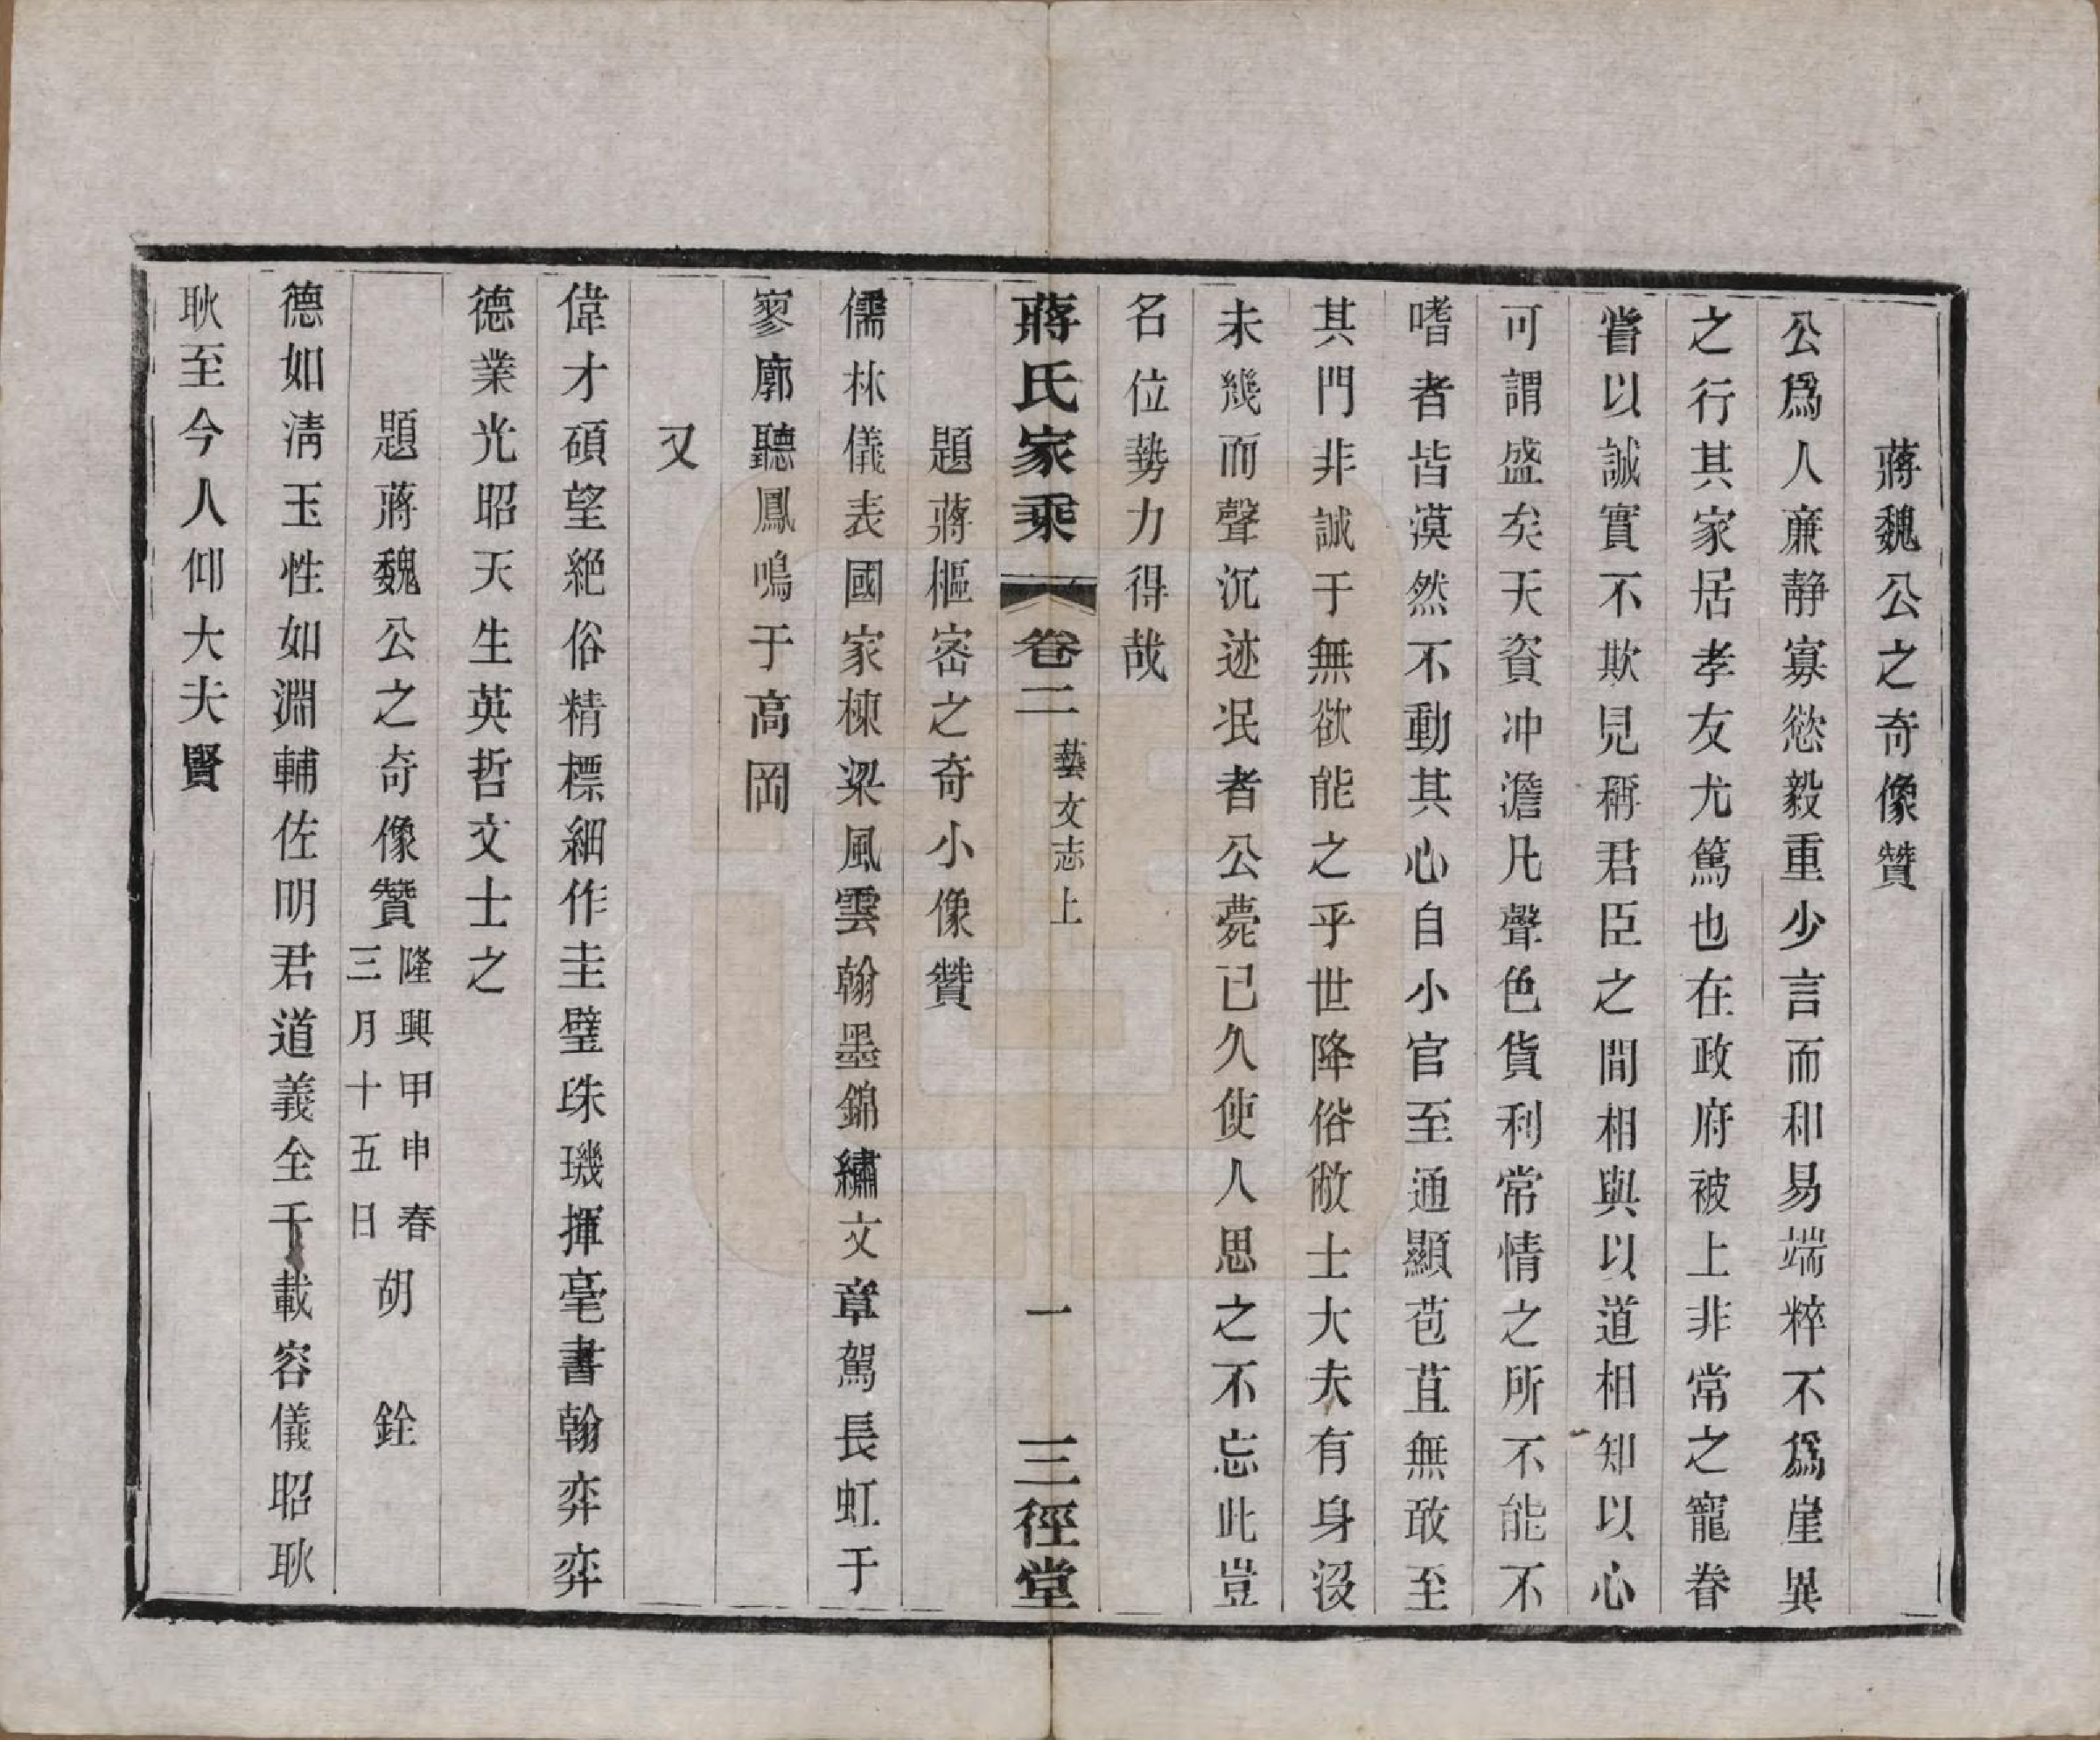 蔣魏公之奇像贊
公爲人廉靜寡慾毅重少言而和易端粹不爲崖異
之行其家居孝友尤篤也在政府被上非常之寵眷
嘗以誠實不欺見稱君臣之間相與以道相知以心
可謂盛矣天資冲澹凡聲色貨利常情之所不能不
嗜者皆漠然不動其心自小官至通顯苞苴無敢至
其門非誠于無欲能之乎世降俗敝士大夫有身沒
未幾而聲沉迹泯者公薨已久使人思之不忘此豈
名位勢力得哉
蔣氏家乘 卷二 藝文志上 一 三徑堂
題蔣樞密之奇小像贊
儒林儀表國家棟梁風雲翰墨錦繡文章駕長虹于
寥廓聽鳳鳴于高岡
又
偉才碩望絕俗精標細作圭璧珠璣揮毫書翰弈弈
德業光昭天生英哲文士之
題蔣魏公之奇像贊 隆興甲申春三月十五日 胡 銓
德如淸玉性如淵輔佐明君道義全千載容儀昭耿
耿至今人仰大夫賢